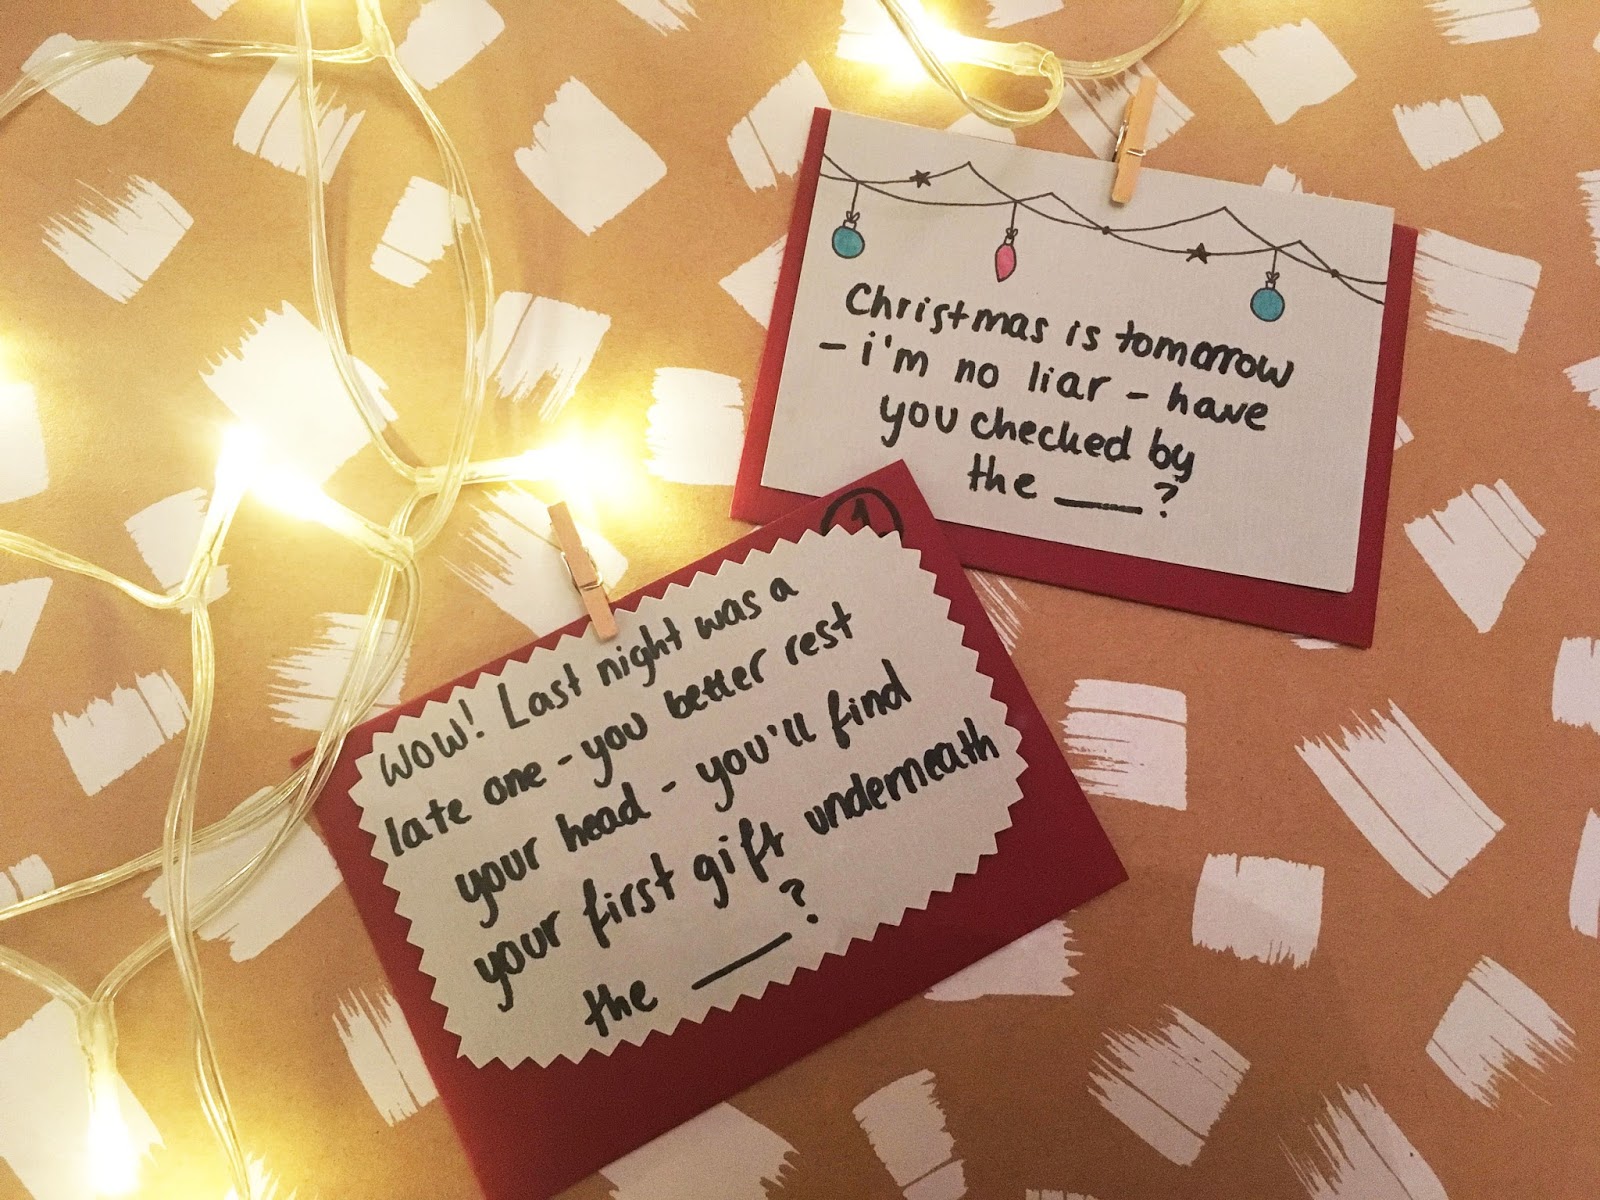 Christmas is tomorrow
- i'm no liar - have
you checked by
the ___?
1
WOW! Last night was a
late one - you better rest
your head - you'll find
your first gift underneath
the ___?